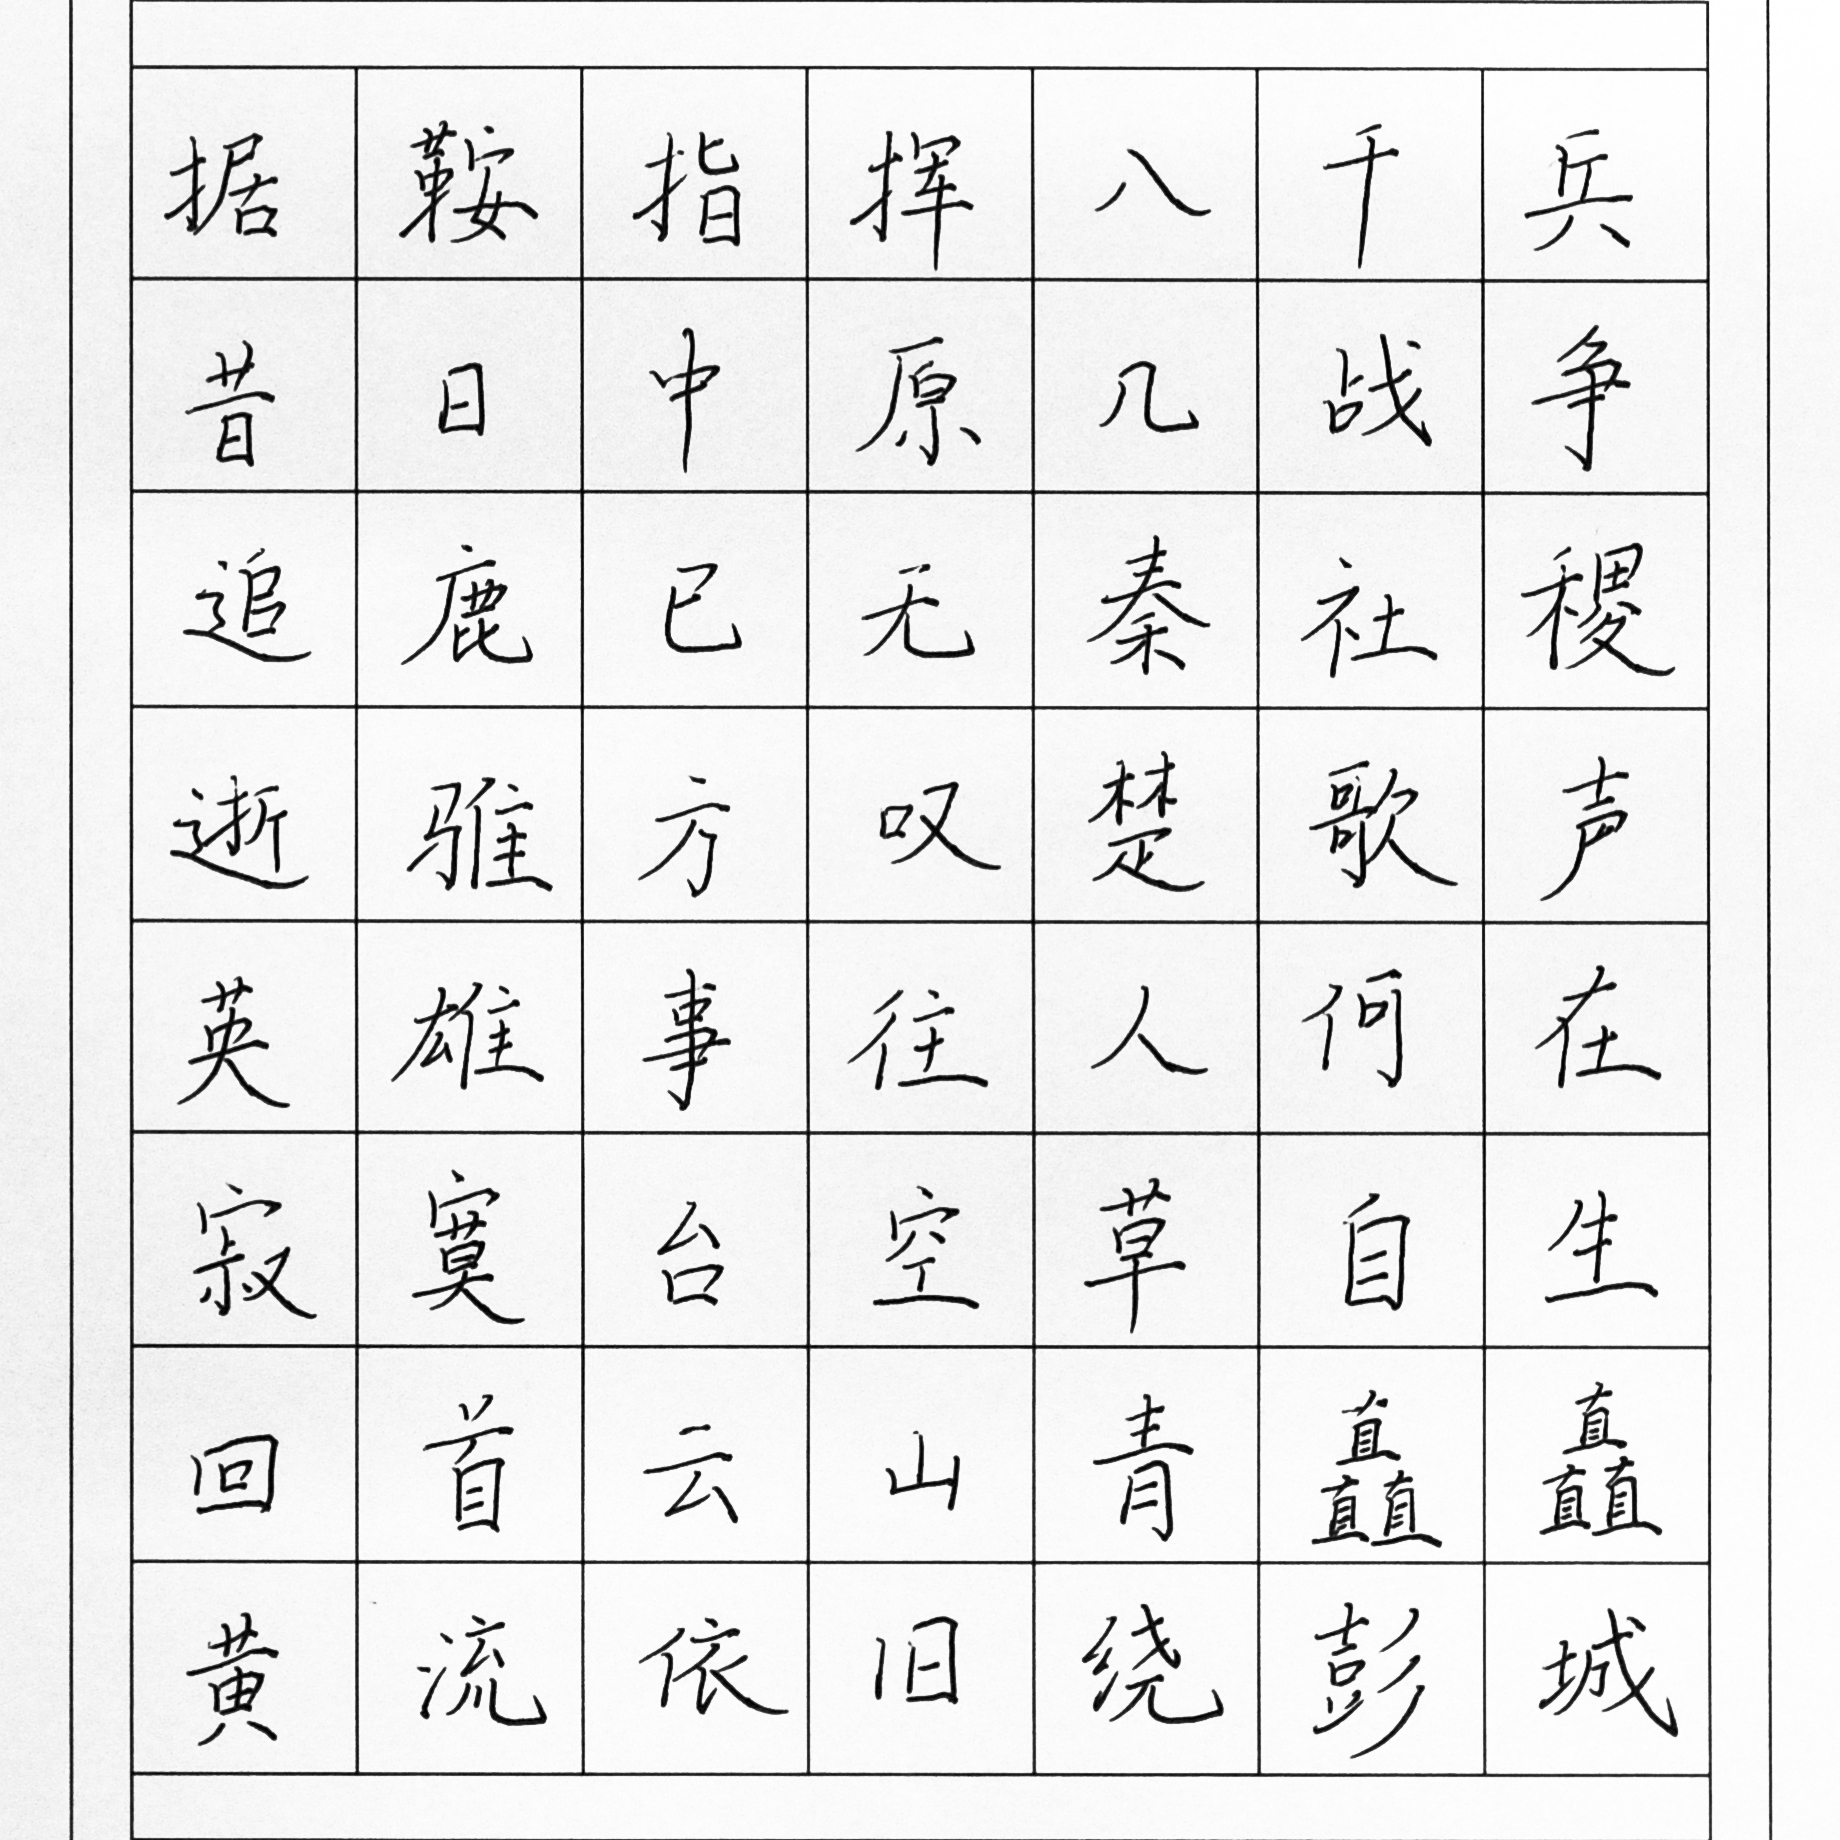 据鞍指挥八千兵
昔日中原几战争
追鹿已无秦社稷
逝骓方叹楚歌声
英雄事往人何在
寂寞台空草自生
回首云山青矗矗
黄流依旧绕彭城